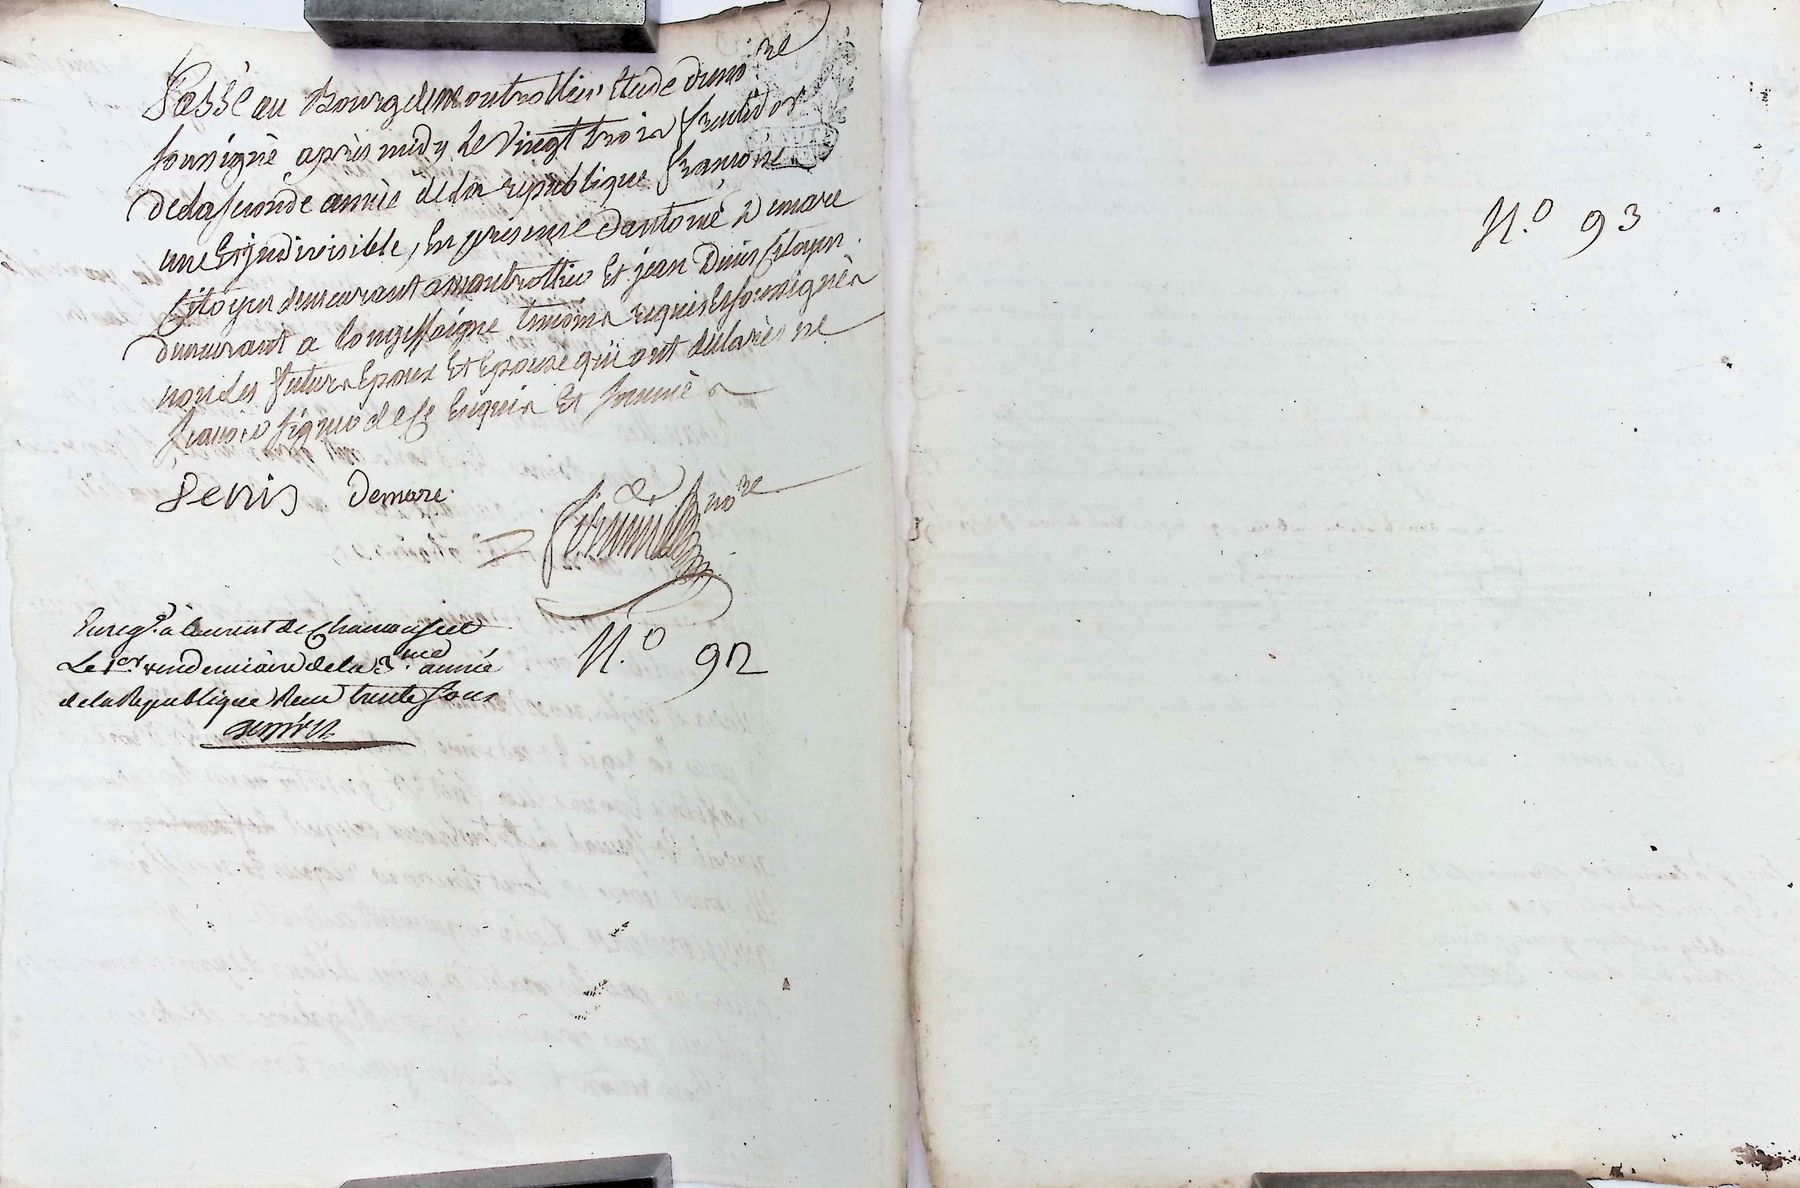 Passé au Bourg de montrottier Etude du no.re
soussigné après midy Le vingt trois fructidor
de la seconde année de la republique francoise
une Et indivisible, En presence d'antoine Demare
Citoyen demeurant a montrottier Et jean Denis Citoyen
demeurant a longessaigne temoins requis Et soussignés
non les futurs Epoux Et Epouse qui ont declarés ne
scavoir signer de ce Enquis Et sommé
Denis Demare
no.re
Enreg.é à laurent de Chamousset
Le 1.er vendemiaire de la 3.me année
de la Republique Reçu trente sous
N.o 92
N.o 93